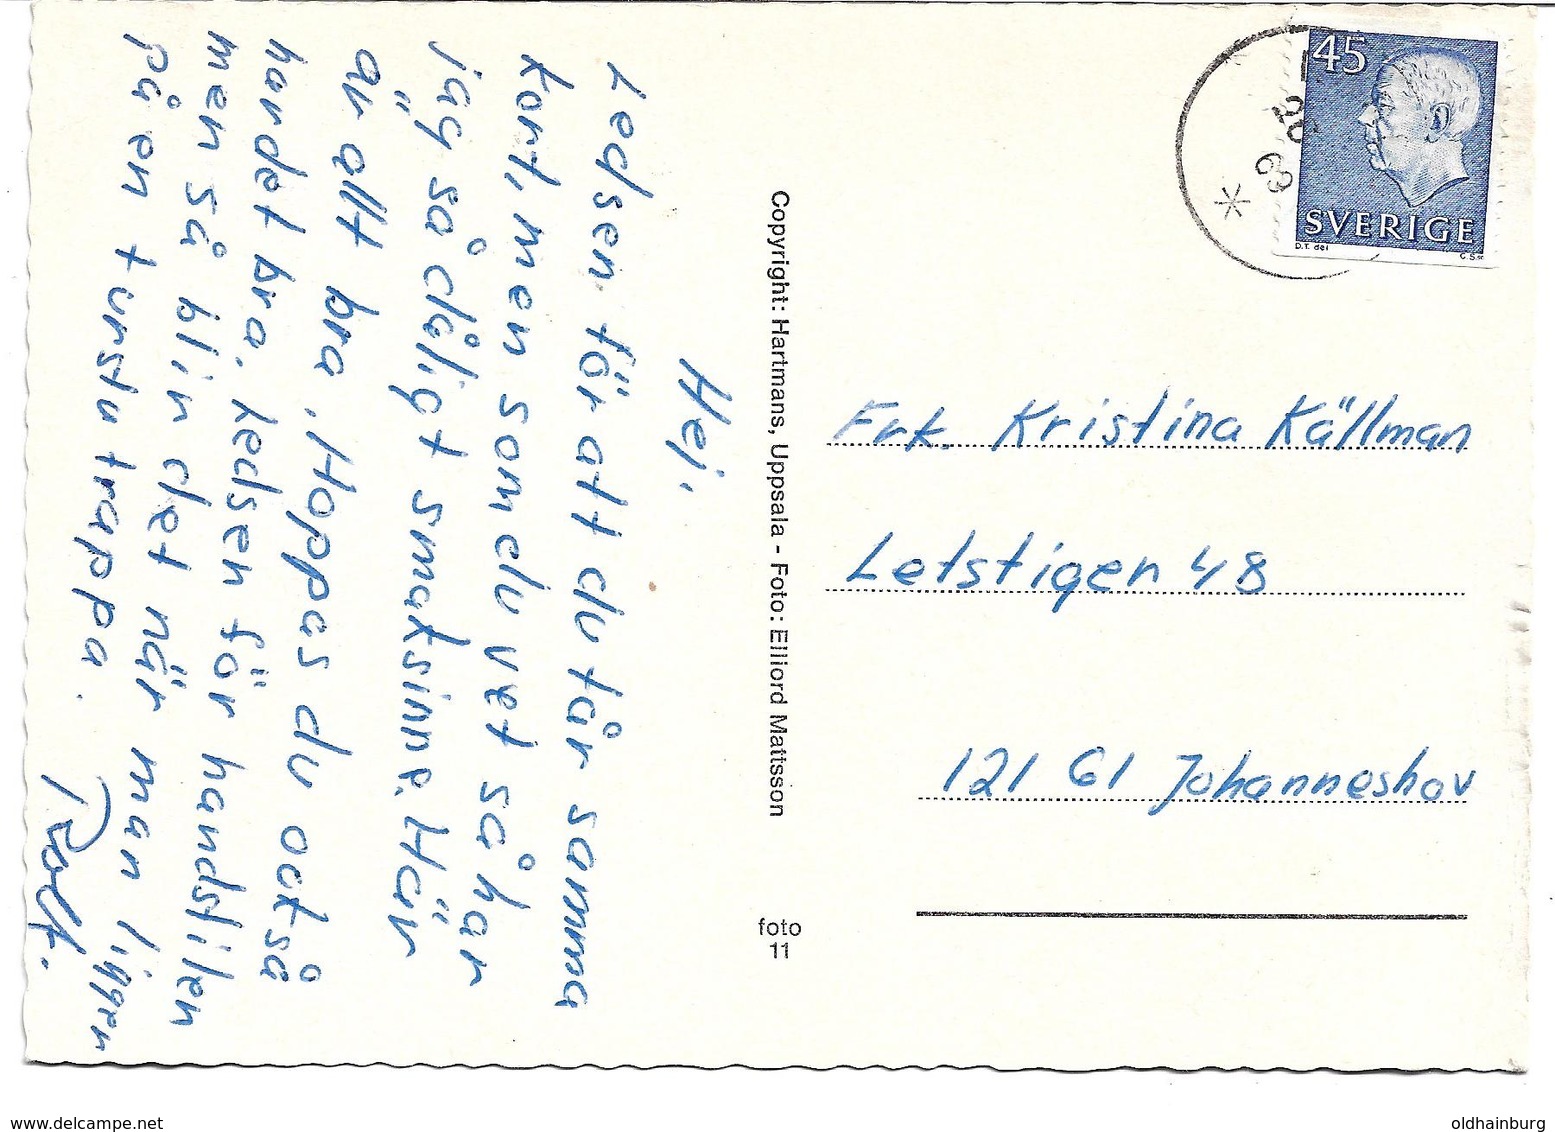 Hej,
Ledsen för att du får samma
kort, men som du vet så har
jag så dåligt smaksinne. Här
är allt bra. Hoppas du också
har det bra. Ledsen för handstilen
men så blir det när man ligger
på en tursturappa.
Rolf.
Copyright: Hartmans, Uppsala - Foto: Elliord Mattsson
foto
11
45
SVERIGE
D.T. del
C.S.
69
Frk. Kristina Källman
Letstigen 48
121 61 Johanneshov
www.delcampe.net
oldhainburg